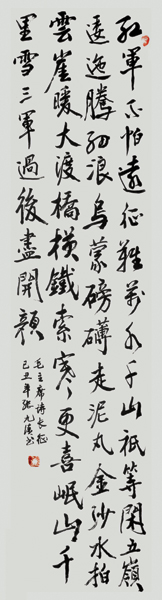 紅軍不怕遠征難萬水千山祇等閑五嶺
逶迤騰細浪烏蒙磅礴走泥丸金沙水拍
雲崖暖大渡橋橫鐵索寒更喜岷山千
里雪三軍過後盡開顏
毛主席詩長征
己丑年張九